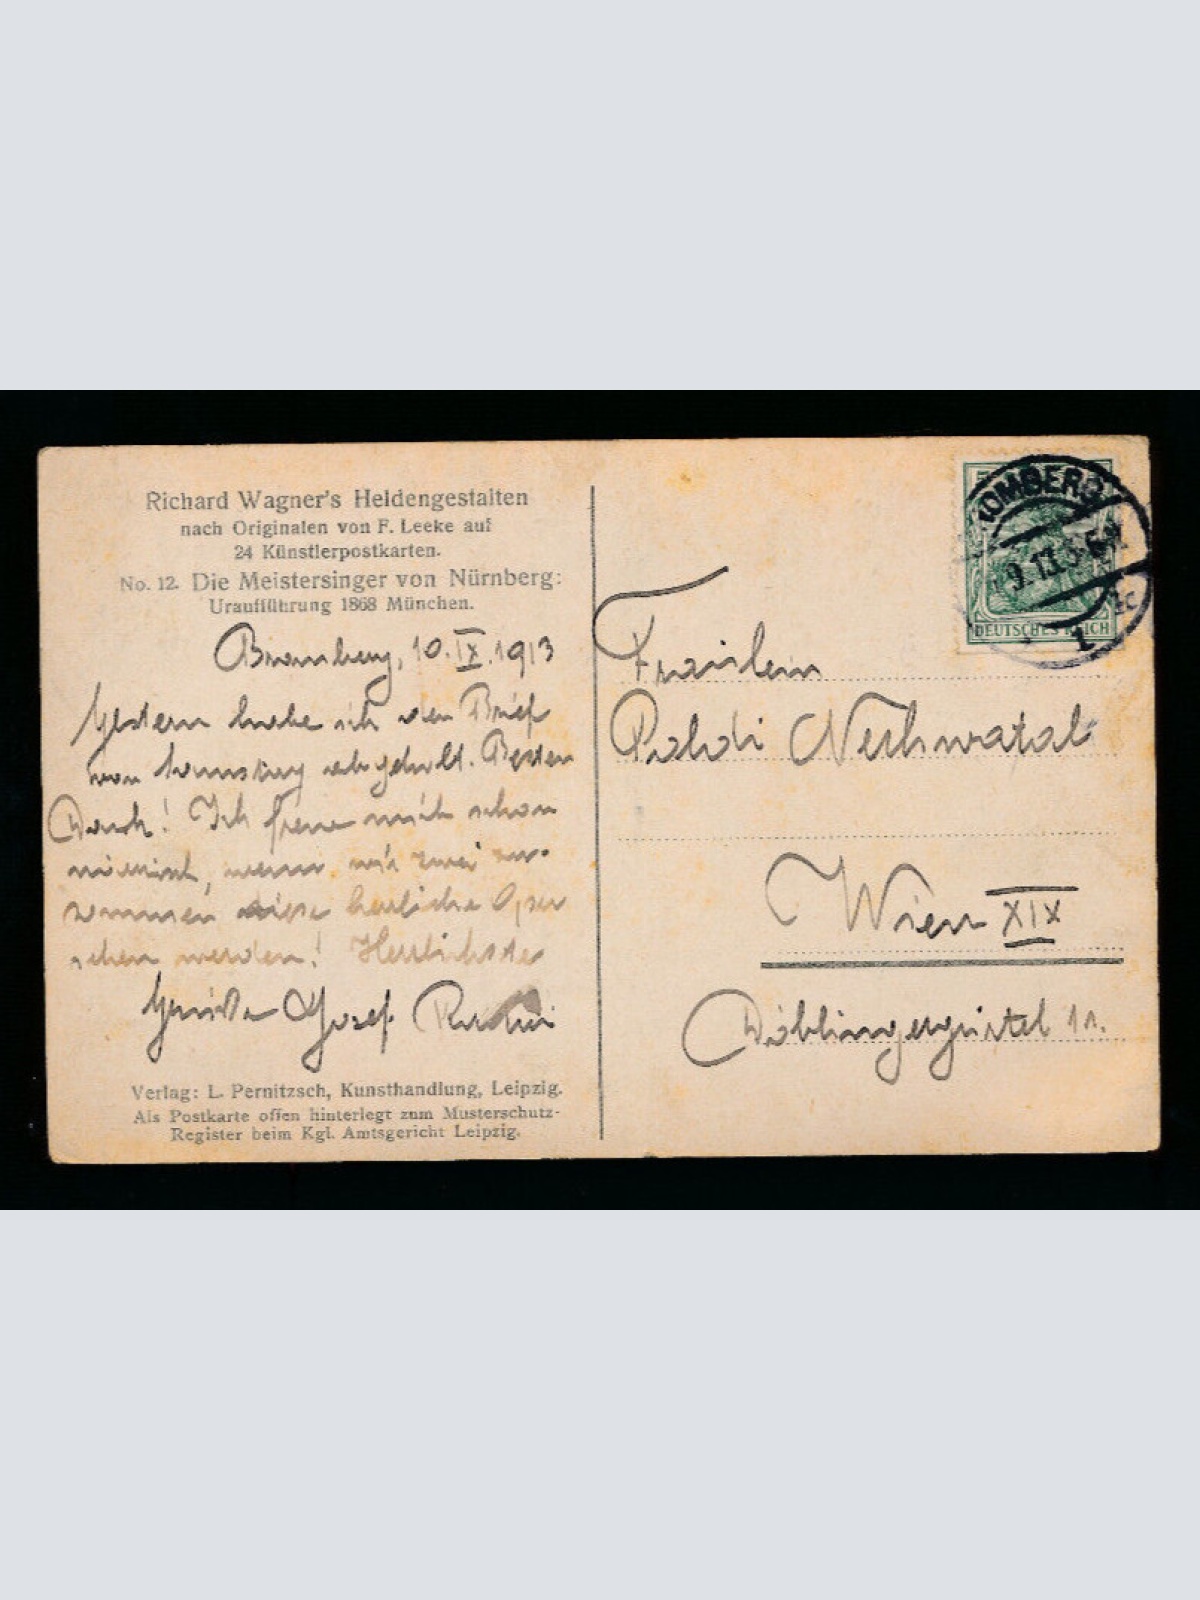 Richard Wagner's Heldengestalten
nach Originalen von F. Leeke auf
24 Künstlerpostkarten.
No. 12. Die Meistersinger von Nürnberg:
Uraufführung 1868 München.
Bromberg, 10. IX. 1913
Gestern habe ich den Brief
von Samstag abgeholt. Besten
Dank! Ich freue mich schon
wenn wir zwei zu-
sammen diese herrliche Oper
sehen werden! Herzlichste
Grüße Josef
Verlag: L. Pernitzsch, Kunsthandlung, Leipzig.
Als Postkarte offen hinterlegt zum Musterschutz-
Register beim Kgl. Amtsgericht Leipzig.
OMBERG
9.13.5-6N
DEUTSCHES REICH
1
Fräulein
Poldi Nechwatal
Wien XIX
Döblingergürtel 11.